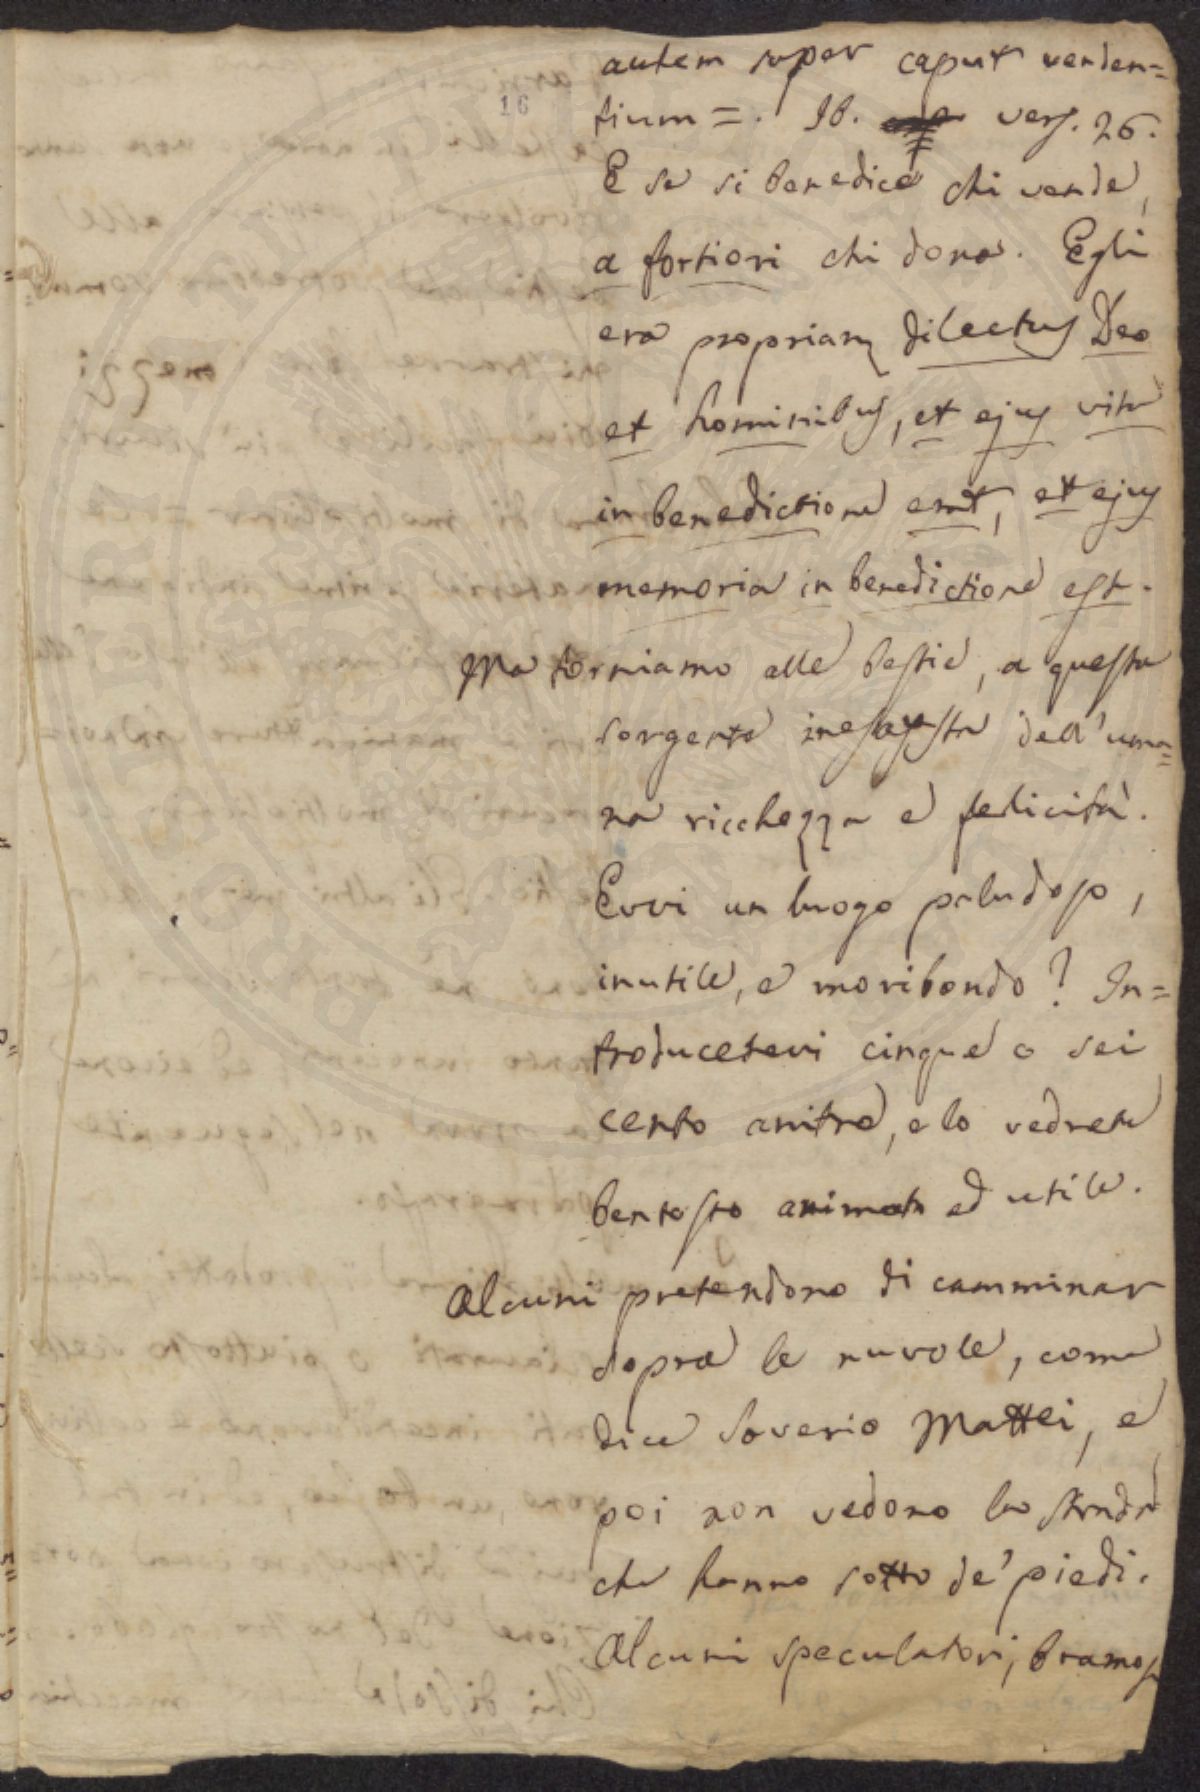 16
autem super caput venden=
tium =. Ib. vers. 26.
E se si benedice chi vende,
a fortiori chi dona. Egli
era propriam dilectus Deo
et hominibus, et ejus vita
in benedictione erat, et ejus
memoria in benedictione est.
Ma torniamo alle bestie, a questa
sorgente inesausta dell'uma=
na ricchezza e felicità.
Evvi un luogo paludoso,
inutile, e moribondo? In=
troducetevi cinque o sei
cento anitre, e lo vedrete
bentosto animato ed utile.
Alcuni pretendono di camminar
sopra le nuvole, come
dice Saverio Mattei, e
poi non vedono la strada
che hanno sotto de' piedi.
Alcuni speculatori, bramosi